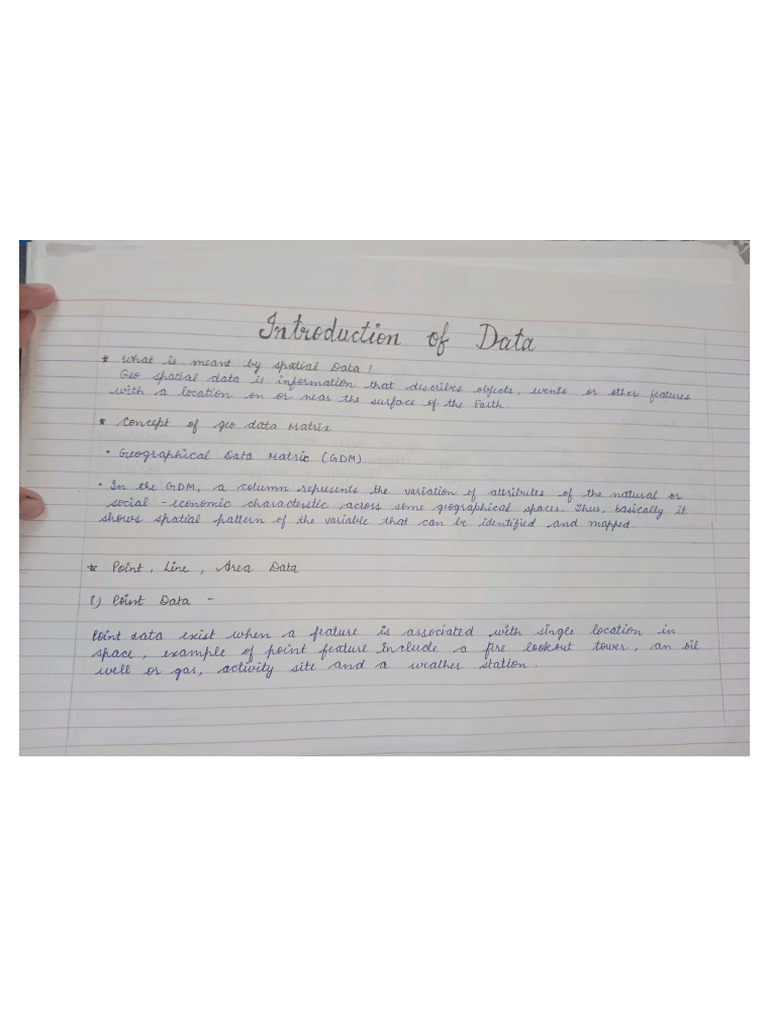 Introduction of Data
* What is meant by spatial Data?
Geo spatial data is information that describes objects, events or other features
with a location on or near the surface of the Earth.
* Concept of geo data Matrix
• Geographical Data Matrix (GDM)
• In the GDM, a column represents the variation of attributes of the natural or
social - economic characteristic across some geographical spaces. Thus, basically it
shows spatial pattern of the variable that can be identified and mapped.
* Point, Line, Area Data
1.) Point Data -
Point data exist when a feature is associated with single location in
space, example of point feature Include a fire lookout tower, an oil
well or gas, activity site and a weather station.